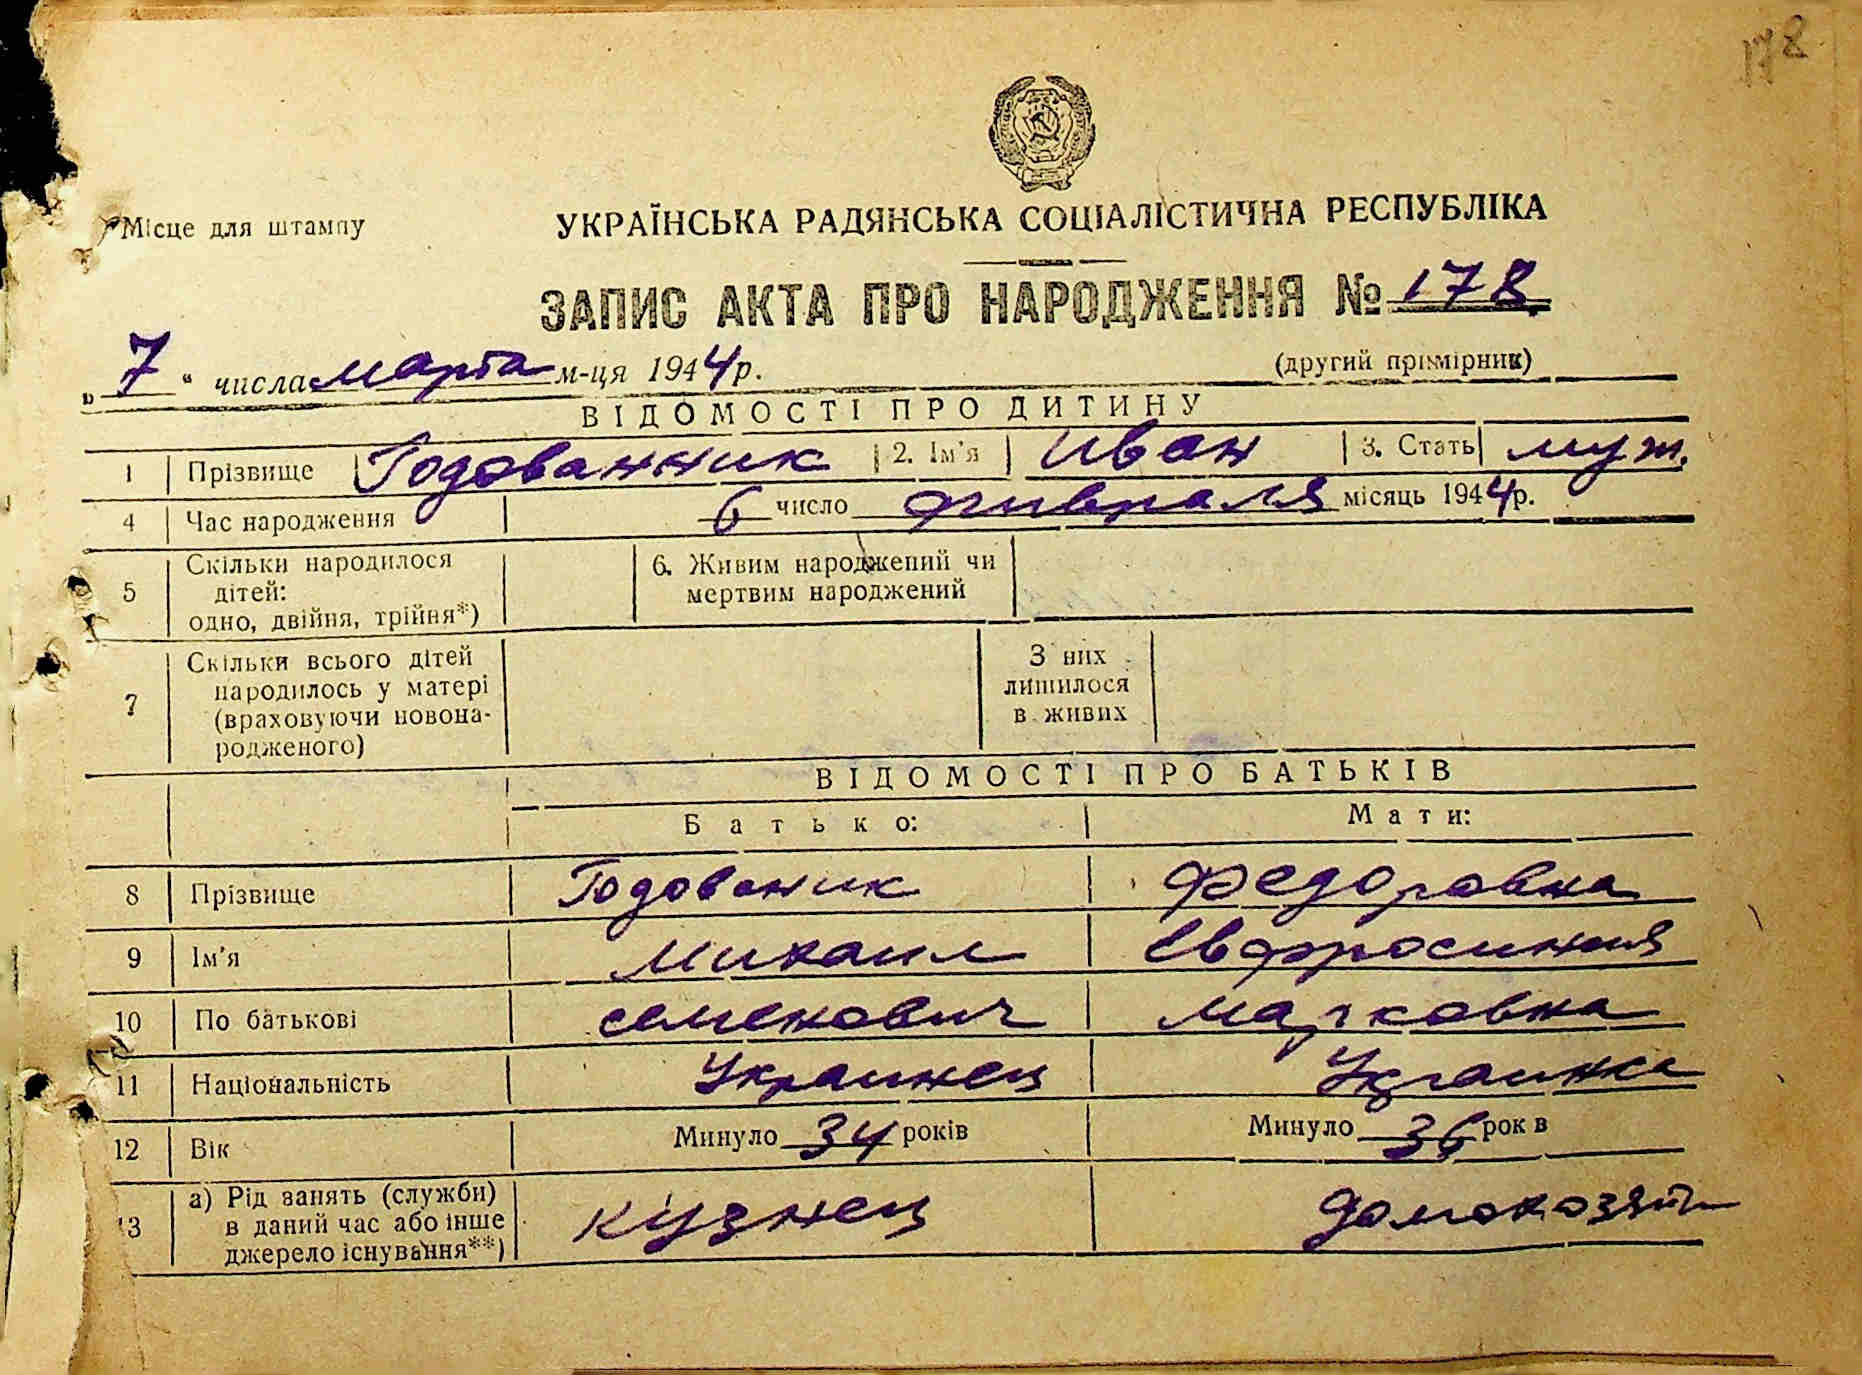 178
Місце для штампу
УКРАЇНСЬКА РАДЯНСЬКА СОЦІАЛІСТИЧНА РЕСПУБЛІКА
ЗАПИС АКТА ПРО НАРОДЖЕННЯ № 178
„ 7 “ числа марта м-ця 1944 р.
(другий примірник)
ВІДОМОСТІ ПРО ДИТИНУ
1 Прізвище Годованник 2. Ім'я Иван 3. Стать муж.
4 Час народження 6 число фивраля місяць 1944 р.
5 Скільки народилося
дітей:
одно, двійня, трійня*)
6. Живим народжений чи
мертвим народжений
7 Скільки всього дітей
народилось у матері
(враховуючи новона-
родженого)
З них
лишилося
в живих
ВІДОМОСТІ ПРО БАТЬКІВ
Батько: Мати:
8 Прізвище Годованик Федоровна
9 Ім'я Михаил Евфросиния
10 По батькові семенович марковна
11 Національність Украинец Украинка
12 Вік Минуло 34 років Минуло 36 рок в
13 а) Рід занять (служби)
в даний час або інше
джерело існування**)
кузнец домохозяй